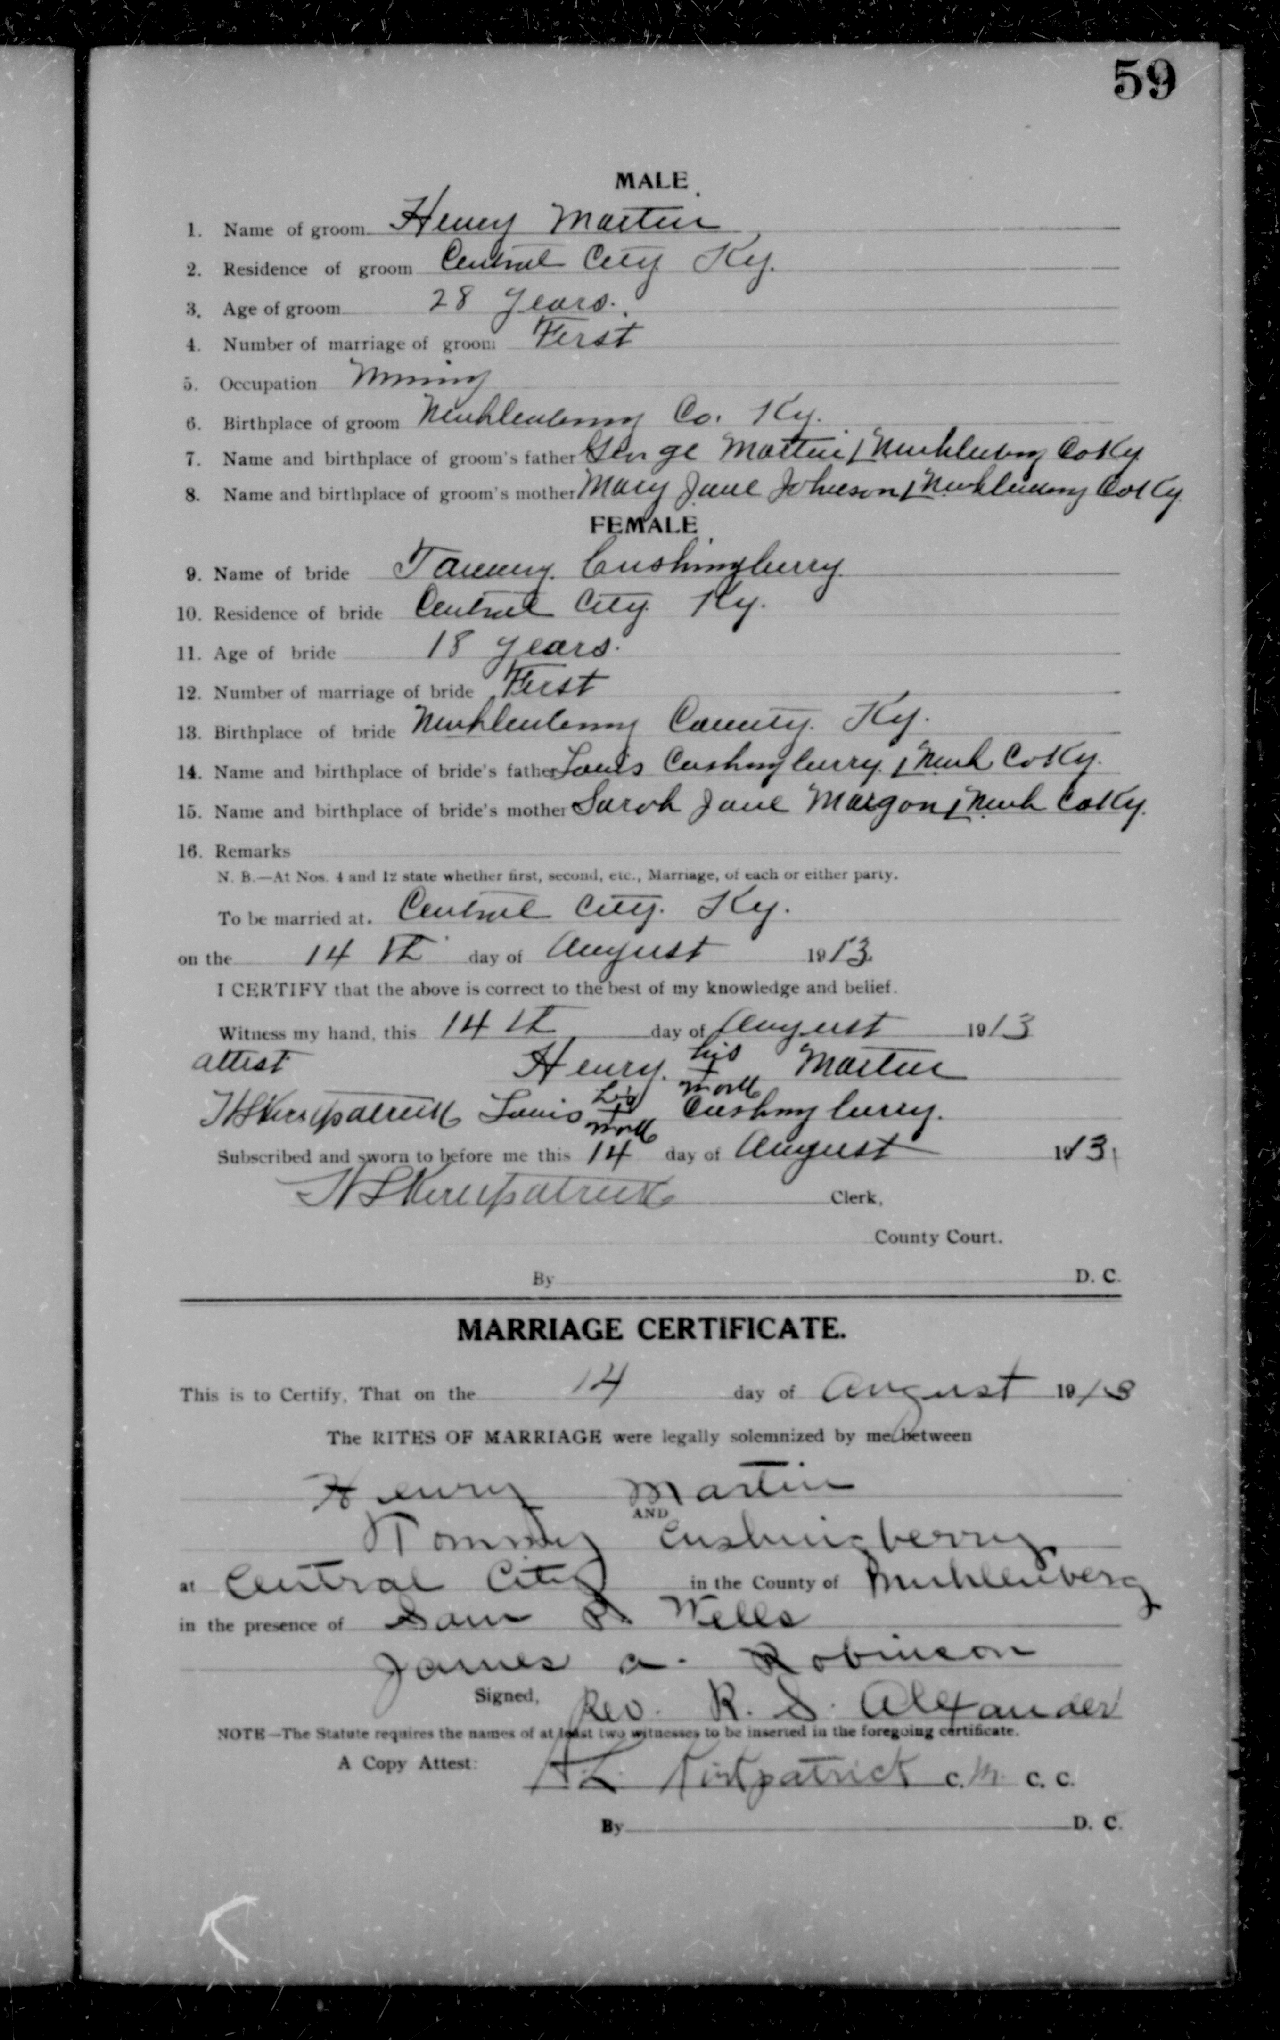 59
MALE
1. Name of groom Henry Martin
2. Residence of groom Central City Ky.
3. Age of groom 28 years.
4. Number of marriage of groom First
5. Occupation Mining
6. Birthplace of groom Muhlenberg Co. Ky.
7. Name and birthplace of groom's father George Martin / Muhlenberg Co Ky
8. Name and birthplace of groom's mother Mary Jane Johnson / Muhlenberg Co Ky
FEMALE
9. Name of bride Tammy Cushingberry
10. Residence of bride Central City Ky.
11. Age of bride 18 years.
12. Number of marriage of bride First
13. Birthplace of bride Muhlenberg County. Ky.
14. Name and birthplace of bride's father Louis Cushingberry / Muh Co Ky.
15. Name and birthplace of bride's mother Sarah Jane Morgan / Muh Co Ky.
16. Remarks
N. B.—At Nos. 4 and 12 state whether first, second, etc., Marriage, of each or either party.
To be married at. Central City. Ky.
on the 14th day of August 1913
I CERTIFY that the above is correct to the best of my knowledge and belief.
Witness my hand, this 14th day of August 1913
attest Henry his + mark Martin
Kirkpatrick Louis his + mark Cushingberry.
Subscribed and sworn to before me this 14 day of August 1913
Kirkpatrick Clerk,
County Court.
By D. C.
MARRIAGE CERTIFICATE.
This is to Certify, That on the 14 day of August 1913
The RITES OF MARRIAGE were legally solemnized by me between
Henry Martin
AND
Tommy Cushingberry
at Central City in the County of Muhlenberg
in the presence of Sam R Wells
James a. Robinson
Signed, Rev. R. S. Alexander
NOTE—The Statute requires the names of at least two witnesses to be inserted in the foregoing certificate.
A Copy Attest: Kirkpatrick C. M. C. C.
By D. C.